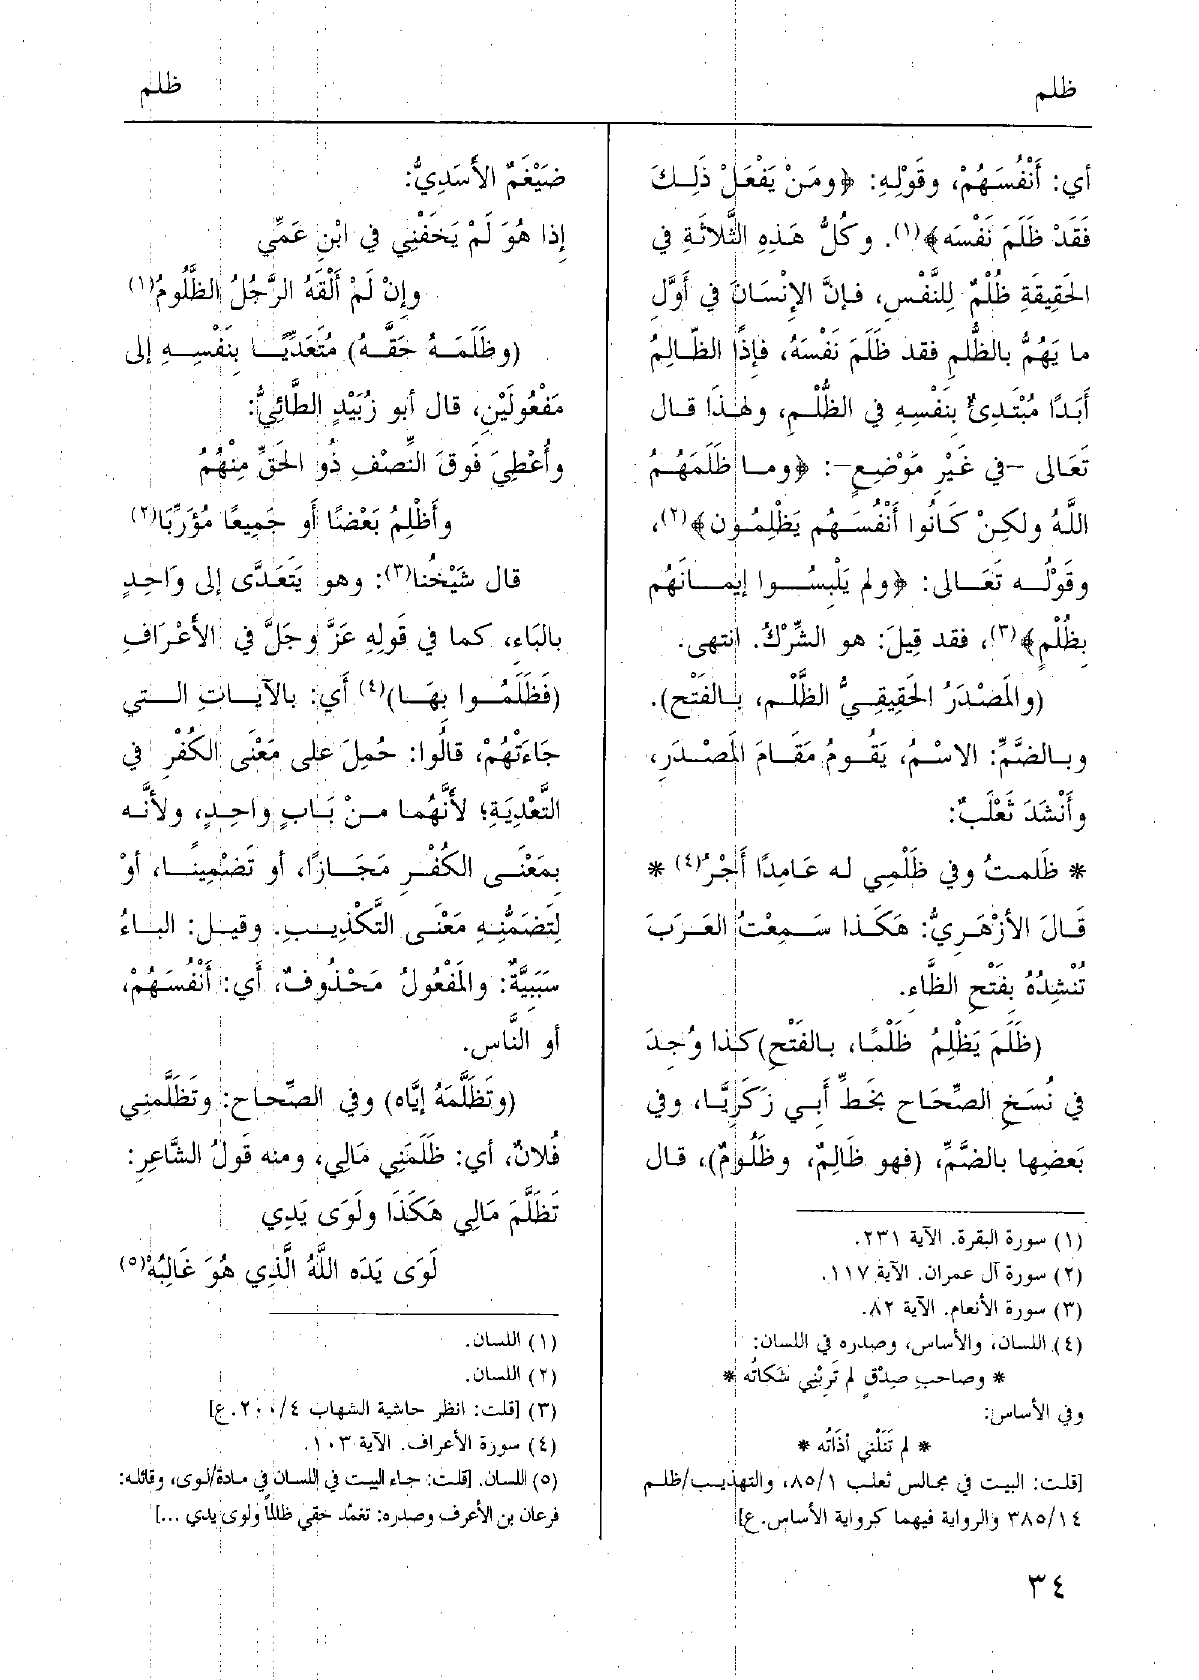 ظلم
ظلم
أي: أَنْفُسَهُمْ، وقَوْلِهِ: ﴿ومَنْ يَفْعَلْ ذَلِكَ
فَقَدْ ظَلَمَ نَفْسَه﴾(١). وكُلُّ هَذِهِ الثَّلاثَةِ في
الحَقِيقَةِ ظُلْمٌ لِلنَّفْسِ، فإنَّ الإنْسَانَ في أَوَّلِ
ما يَهُمُّ بالظُّلمِ فقد ظَلَمَ نَفْسَهُ، فإذًا الظّالِمُ
أَبَدًا مُبْتَدِئٌ بِنَفْسِهِ في الظُّلْمِ، ولهذَا قال
تَعَالى –في غَيْرِ مَوْضِعٍ–: ﴿وما ظَلَمَهُمُ
اللَّهُ ولكِنْ كَانُوا أَنْفُسَهُم يَظْلِمُون﴾(٢)،
وقَوْلُه تَعَالى: ﴿ولم يَلْبِسُوا إيمَانَهُم
بِظُلْمٍ﴾(٣)، فقد قِيلَ: هو الشِّرْكُ. انتهى.
(والمَصْدَرُ الحَقِيقِيُّ الظَّلْم، بالفَتْح).
وبالضَّمِّ: الاسْمُ، يَقُومُ مَقَامَ المَصْدَرِ،
وأَنْشَدَ ثَعْلَبٌ:
* ظَلَمتُ وفي ظَلْمِي له عَامِدًا أَجْرُ(٤) *
قَالَ الأزْهَرِيُّ: هَكَذا سَمِعْتُ العَرَبَ
تُنْشِدُهُ بِفَتْحِ الظَّاء.
(ظَلَمَ يَظْلِمُ ظَلْمًا، بالفَتْحِ) كذا وُجِدَ
في نُسَخِ الصِّحَاح بخَطِّ أَبي زَكَرِيَّا، وفي
بَعضِها بالضَّمِّ، (فهو ظَالِمٌ، وظَلُومٌ)، قال
(١) سورة البقرة. الآية ٢٣١.
(٢) سورة آل عمران. الآية ١١٧.
(٣) سورة الأنعام. الآية ٨٢.
(٤) اللسان، والأساس، وصدره في اللسان:
* وصاحبِ صِدْقٍ لم تَرِبْنِي شَكاتُه *
وفي الأساس:
* لم تَنَلْني أذَاتُه *
[قلت: البيت في مجالس ثعلب ٨٥/١، والتهذيب/ظلم
٣٨٥/١٤ والرواية فيهما كرواية الأساس. ع]
ضَيْغَمٌ الأَسَدِيُّ:
إذا هُوَ لَمْ يَخَفْنِي في ابْنِ عَمِّي
وإنْ لَمْ أَلْقَهُ الرَّجُلُ الظَّلُومُ(١)
(وظَلَمَهُ حَقَّهُ) مُتَعَدِّيًا بِنَفْسِهِ إلى
مَفْعُولَيْنِ، قال أبو زُبَيْدٍ الطَّائِيُّ:
وأُعْطِيَ فَوقَ النِّصْفِ ذُو الحَقِّ مِنْهُمُ
وأَظْلِمُ بَعْضًا أو جَمِيعًا مُؤَرِّبَا(٢)
قال شَيْخُنا(٣): وهو يَتَعَدَّى إلى وَاحِدٍ
بالبَاءِ، كما في قَولِهِ عَزَّ وجَلَّ في الأَعْرَافِ
(فَظَلَمُوا بِهَا)(٤) أَي: بالآيَاتِ التي
جَاءَتْهُمْ، قالُوا: حُمِلَ على مَعْنَى الكُفْرِ في
التَّعْدِيَةِ؛ لأنَّهُما مِنْ بَابٍ واحِدٍ، ولأنَّه
بِمَعْنَى الكُفْرِ مَجَازًا، أو تَضْمِينًا، أوْ
لِتَضَمُّنِهِ مَعْنَى التَّكْذِيبِ. وقيل: البَاءُ
سَبَبِيَّةٌ: والمَفْعُولُ مَحْذُوفٌ، أَي: أَنْفُسَهُمْ،
أو النَّاس.
(وتَظَلَّمَهُ إيَّاه) وفي الصِّحَاح: وتَظَلَّمَنِي
فُلانٌ، أي: ظَلَمَنِي مَالِي، ومنه قَولُ الشَّاعِرِ:
تَظَلَّمَ مَالِي هَكَذَا ولَوَى يَدِي
لَوَى يَدَه اللَّهُ الَّذِي هُوَ غَالِبُهْ(٥)
(١) اللسان.
(٢) اللسان.
(٣) [قلت: انظر حاشية الشهاب ٢٠٠/٤. ع]
(٤) سورة الأعراف. الآية ١٠٣.
(٥) اللسان. [قلت: جاء البيت في اللسان في مادة/لوى، وقائله:
فرعان بن الأعرف وصدره: تغمّد حقي ظالمًا ولوى يدي ...]
٣٤